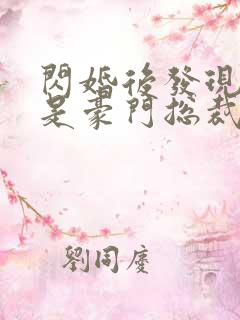 閃婚後發現
是豪門總裁
劉同慶